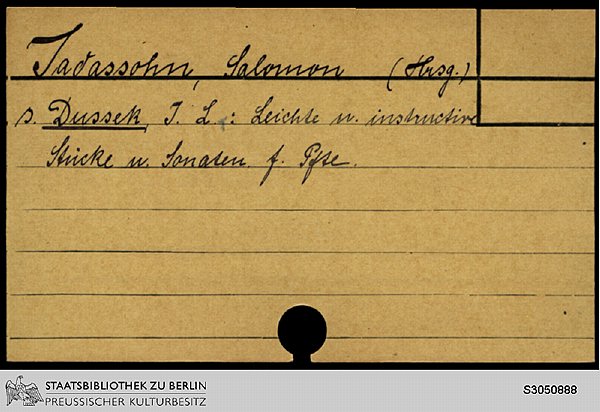 Jadassohn, Salomon (Hrsg.)
s. Dussek, J. L.: Leichte u. instructive
Stücke u. Sonaten f. Pfte.
STAATSBIBLIOTHEK ZU BERLIN
PREUSSISCHER KULTURBESITZ
S3050888